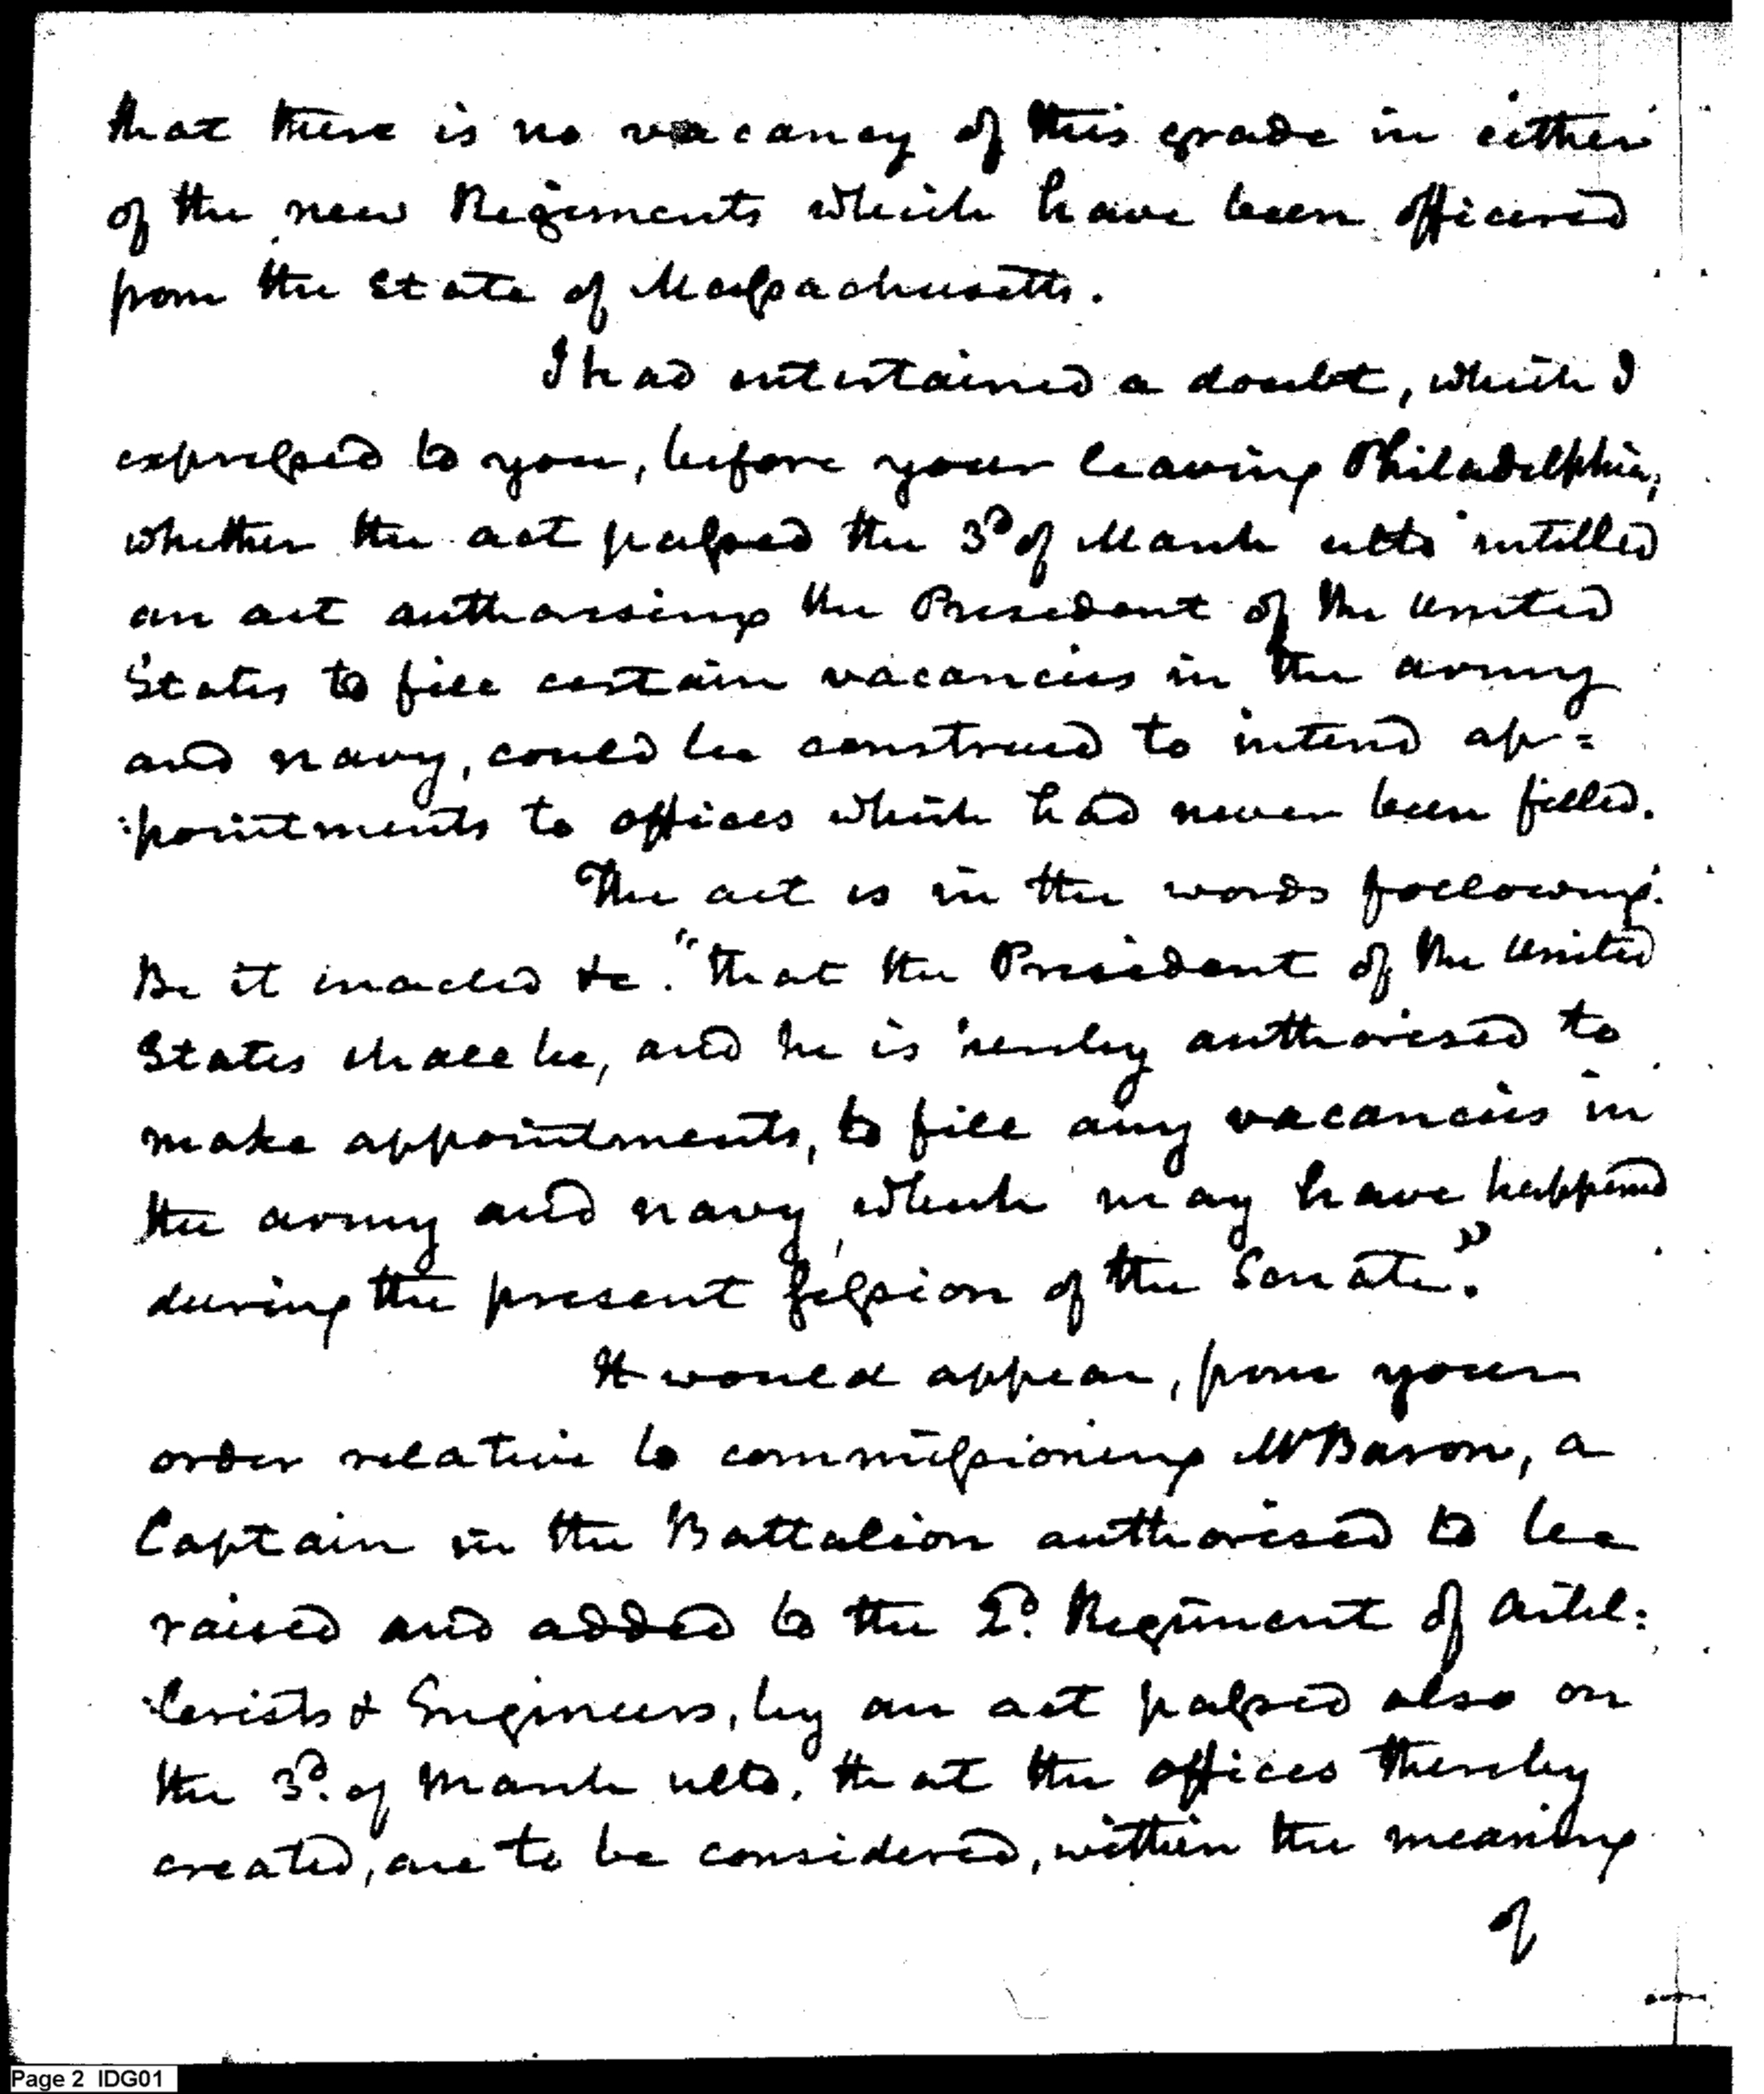 that there is no vacancy of this grade in either
of the new Regiments which have been officered
from the State of Massachusetts.
I had entertained a doubt, which I
expressed to you, before your leaving Philadelphia,
whether the act passed the 3d of March ulto intitled
an act authorising the President of the United
States to fill certain vacancies in the army
and navy, could be construed to intend ap=
:pointments to offices which had never been filled.
The act is in the words following.
Be it enacted &c. "that the President of the United
States shall be, and he is hereby authorised to
make appointments, to fill any vacancies in
the army and navy, which may have happened
during the present session of the Senate."
It would appear, from your
order relative to commissioning Mr Baron, a
Captain in the Battalion authorised to be
raised and added to the 2d. Regiment of Artil:
:lerists & Engineers, by an act passed also on
the 3d. of March ulto, that the offices thereby
created, are to be considered, within the meaning
of
Page 2 IDG01